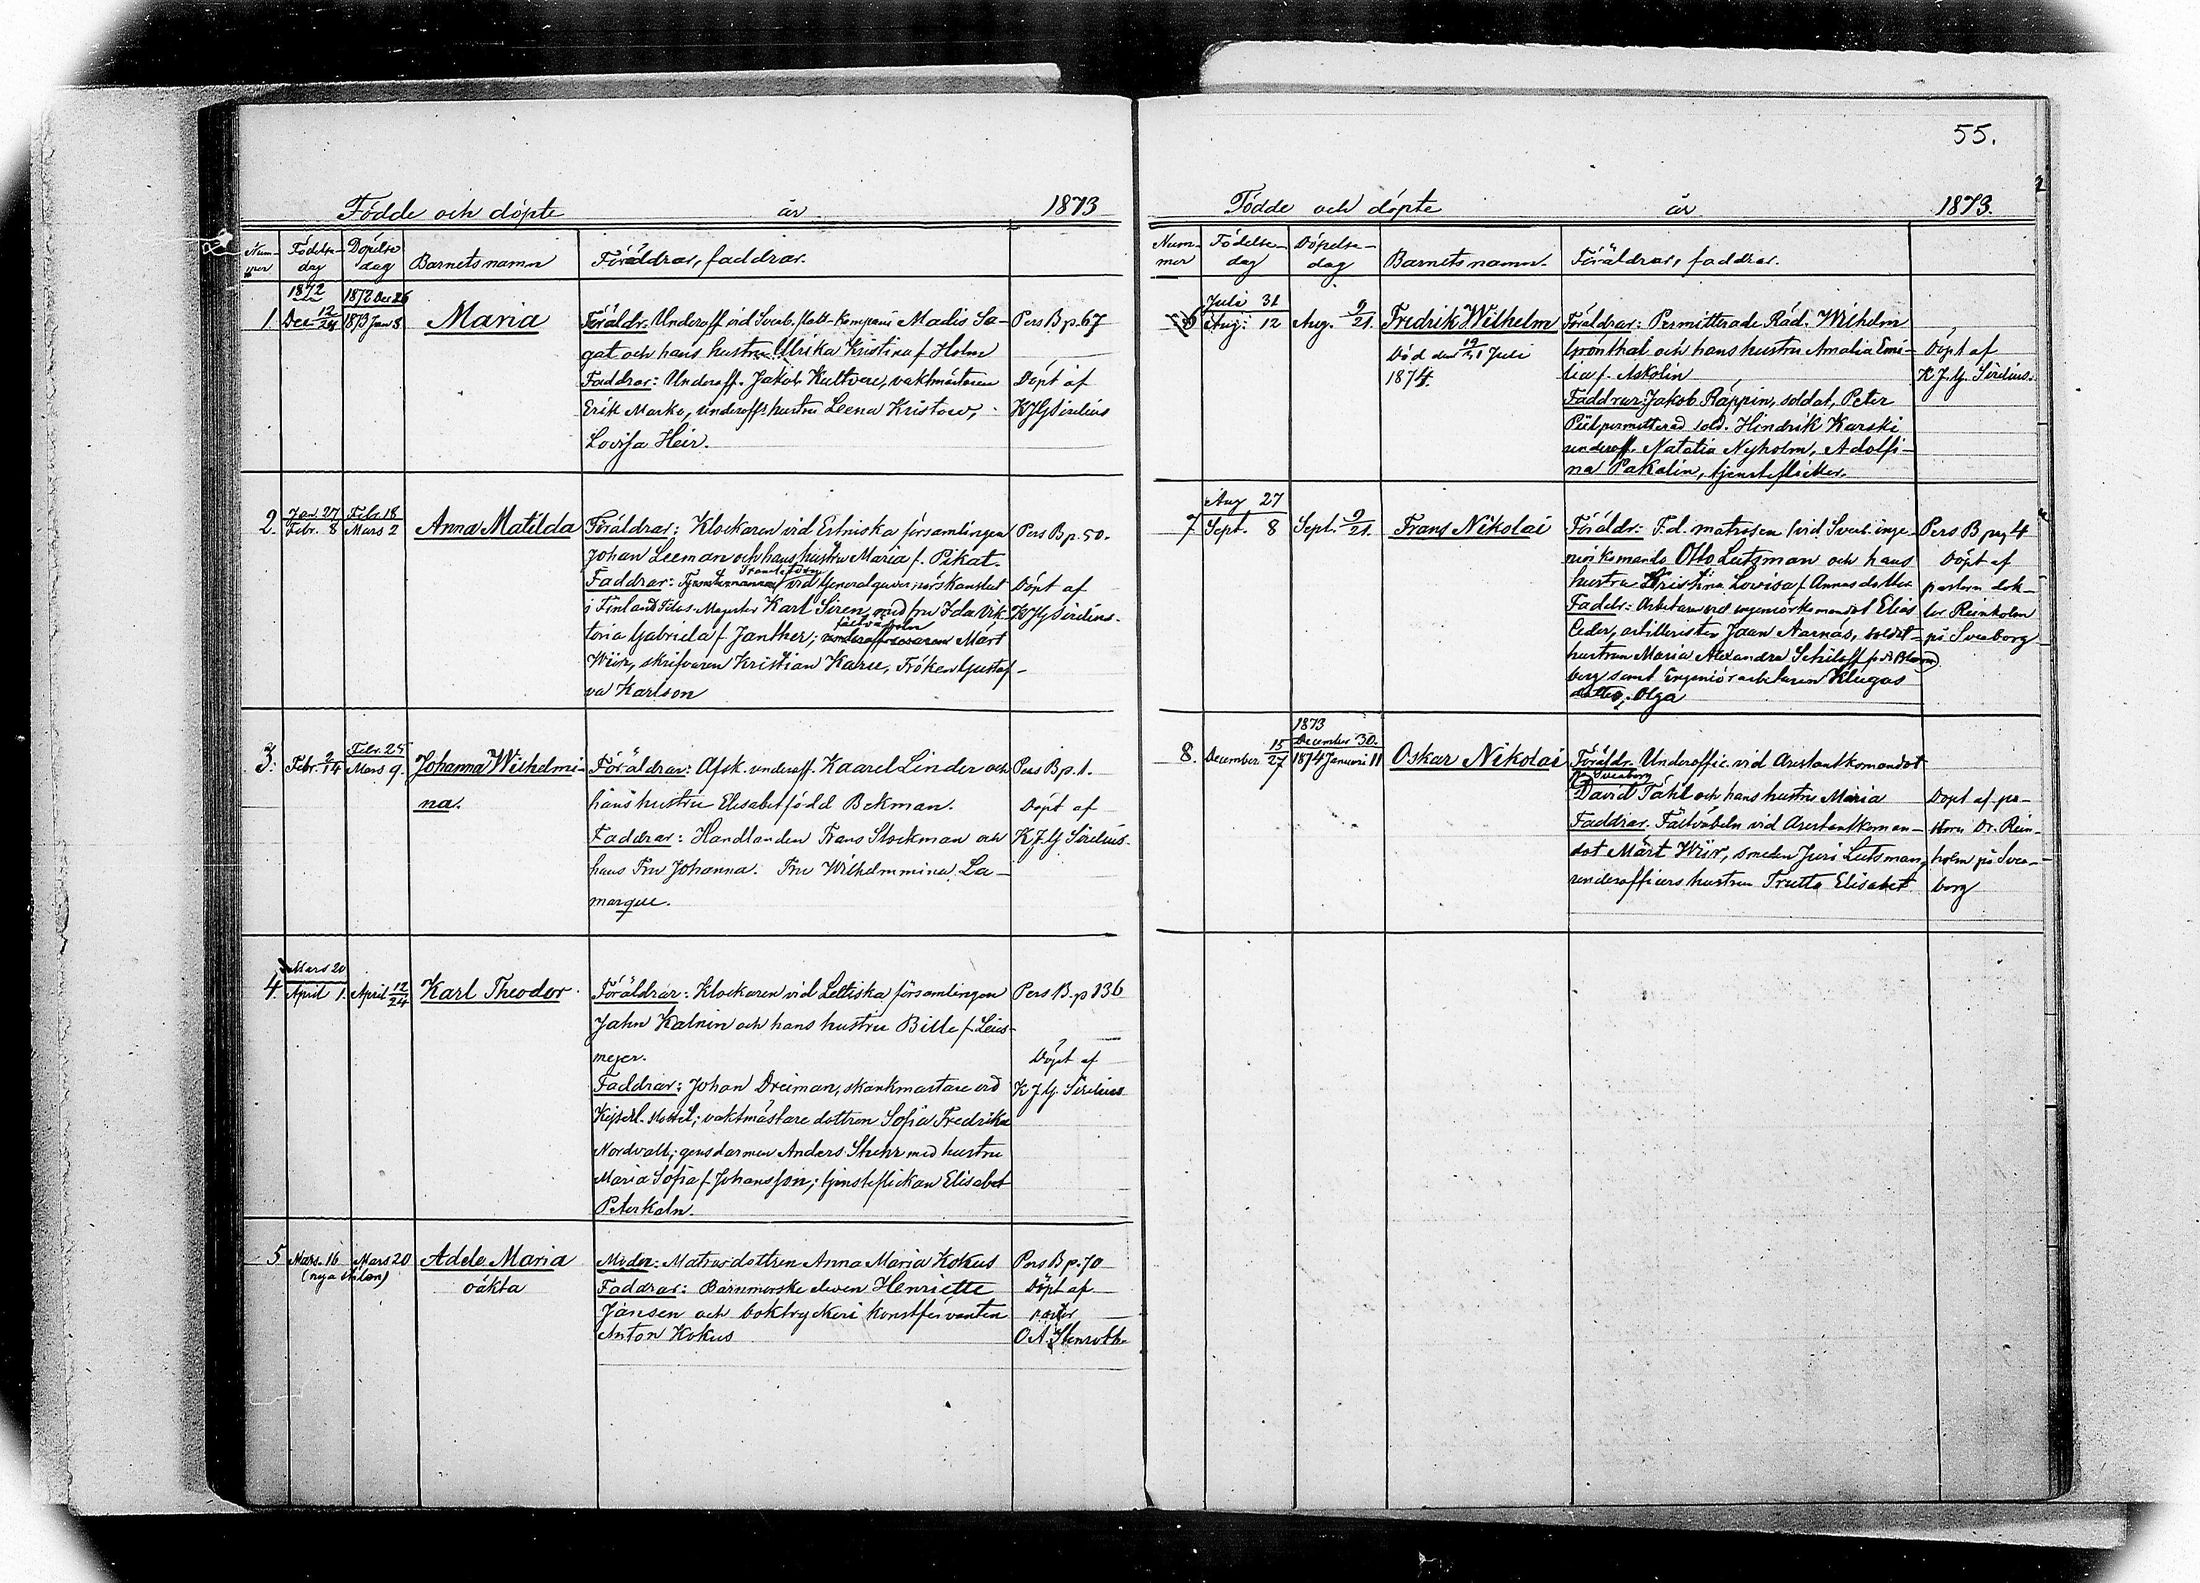 55.
Födde och döpte år 1873
Num-
mer
Födelse-
dag
Döpelse
dag
Barnets namn
Föräldrar, faddrar.
1
1872
Dec. 12/24
1872 Dec 26
1873 Jan 8
Maria
Föräldr. Underoff vid Sveab. Kompani Madis Sa-
gat och hans hustru Ulrika Kristina f. Holm
Faddrar: Underoff. Jakob Kultvere, vaktmästaren
Erik Marko, underoffs hustru Leena Kristow,
Lovisa Heir.
Pers B p. 67
Döpt af
KJG Sirelius
2.
Jan 27
Febr. 8
Febr. 18
Mars 2
Anna Matilda
Föräldrar: Klockaren vid Estniska församlingen
Johan Leeman och hans hustru Maria f. Pikat.
Translatorn
Faddrar: vid Generalguvernörskansliet
i Finland Magister Karl Siren med fru Ida Vik-
toria Gabriela f. Janther; fältväbeln Märt
Wiir, skrifvaren Kristian Karu, Fröken Gustaf-
va Karlson
Pers B p. 50.
Döpt af
KJG Sirelius.
3.
Febr. 2/14
Febr. 25
Mars 9.
Johanna Wilhelmi-
na.
Föräldrar: Afsk. underoff. Kaarel Linder och
hans hustru Elisabet född Bekman.
Faddrar: Handlanden Frans Stockman och
hans Fru Johanna. Fru Wilhelmmina La-
marque.
Pers B p. 1.
Döpt af
K.J.G Sirelius.
4.
Mars 20
April 1.
April 12/24
Karl Theodor.
Föräldrar: Klockaren vid Lettiska församlingen
Jahn Kalnin och hans hustru Bille f. Leies-
meyer.
Faddrar: Johan Dreiman, skänkmästare vid
Kejserl. ; vaktmästare dottren Sofia Fredrika
Nordvall; gensdarmen Anders Stuhr med hustru
Maria Sofia f. Johansson; tjensteflickan Elisabet
Peterkaln.
Pers B. p 136
Döpt af
K J G. Sirelius
5
Mars. 16
(nya stilen)
Mars 20
Adele Maria
oäkta
Moder: Matrosdottren Anna Maria Kokus
Faddrar: Barnmorske eleven Henriette
Jansen och boktryckeri konstförvanten
Anton Kokus
Pers B p. 70
Döpt af
pastor
O A Stenroth.
Födde och döpte år 1873.
Num-
mer
Födelse-
dag
Döpelse-
dag
Barnets namn.
Föräldrar, faddrar.
6
Juli 31
Aug. 12
Aug. 9/21.
Fredrik Wilhelm
Död den 19/31 Juli
1874.
Föräldrar: Permitterade Råd. Wilhelm
Grönthal och hans hustru Amalia Emi-
lia f. Askolin
Faddrar: Jakob Räppin, soldat, Peter
Piel permitterad sold. Hindrik Karski
underoff. Natalia Nyholm, Adolfi-
na Pakalin, tjensteflickor.
Döpt af
K. J. G. Sirelius.
7
Aug 27
Sept. 8
Sept. 9/21.
Frans Nikolai
Föräldr: F.d. matrosen vid Sveab. inge-
niörkomando Otto Lutzman och hans
hustru Kristina Lovisa f. Annasdotter
Faddr: Arbetaren vid ingeniörkomandot Elias
Ceder, artilleristen Jaan Aarnas, soldat-
hustrun Maria Alexandra Schiloff f. Blom-
berg samt Ingeniör arbetaren Klugas
dotter, Olga
Pers B pag 4
Döpt af
pastorn dok-
tor Reinholm
på Sveaborg
8.
December 15/27
1873
December 30.
1874 Januari 11
Oskar Nikolai
Föräldr. Underoffic. vid Arestantkomandot
på Sveaborg
David Tähl och hans hustru Maria
Faddrar. Fältväbeln vid Arestantkoman-
dot Märt Wiir, smeden Juri Lutsman,
underofficers hustrun Trutta Elisabet
Döpt af pa-
storn Dr. Rein-
holm på Svea-
borg